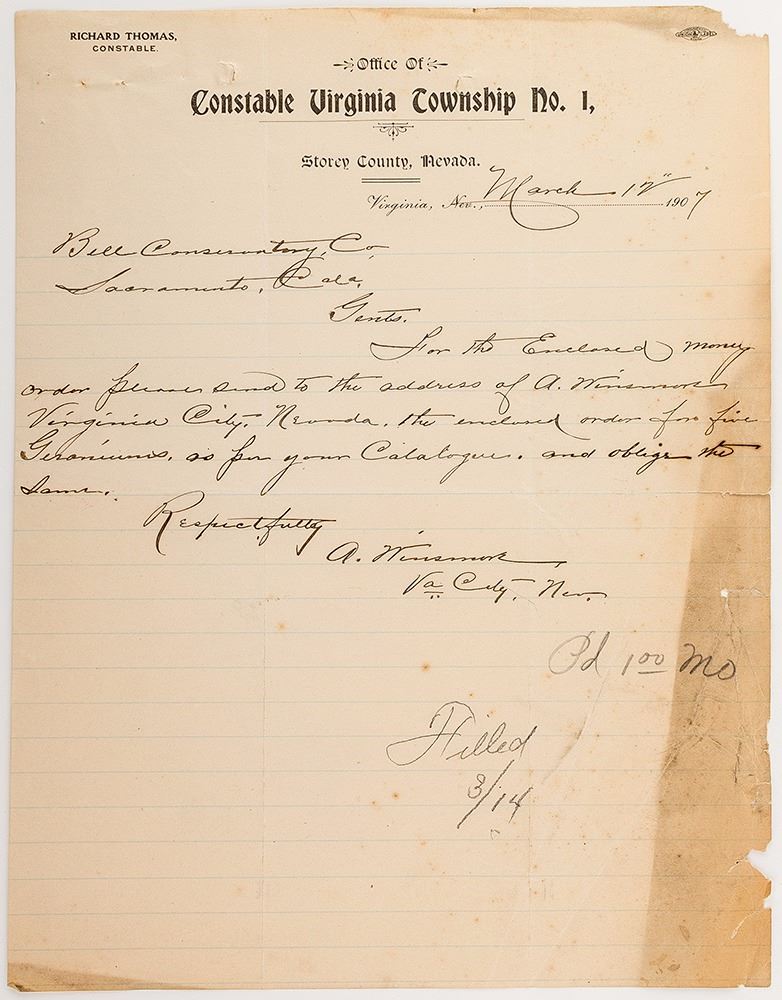 RICHARD THOMAS,
CONSTABLE.
Office Of
Constable Virginia Township No. 1,
Storey County, Nevada.
Virginia, Nev., March 12" 1907
Bell Conservatory, Co,
Sacramento, Cala,
Gents.
For the Enclosed money
order please send to the address of A. Winsmore
Virginia City, Nevada, the enclosed order for five
Geraniums, as per your Catalogue. and oblige the
same.
Respectfully
A. Winsmore,
Va City, Nev.
Pd 1 00 MO
Filled
3/14